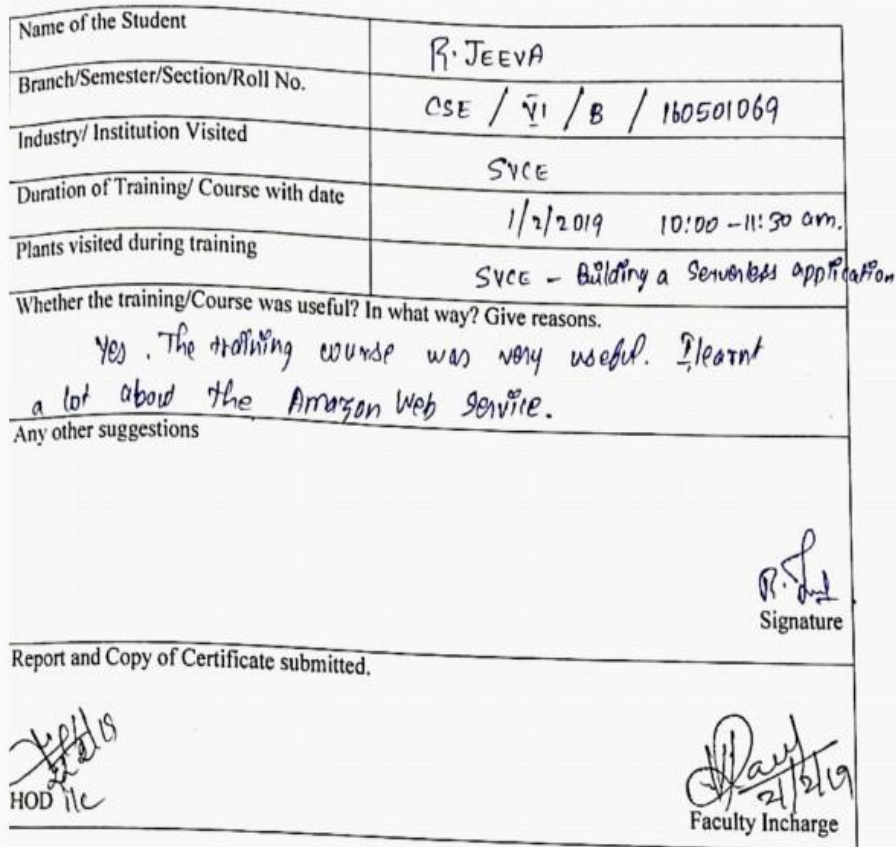 Name of the Student
R. JEEVA
Branch/Semester/Section/Roll No.
CSE / VI / B / 160501069
Industry/ Institution Visited
SVCE
Duration of Training/ Course with date
1/2/2019 10:00 - 11:30 am.
Plants visited during training
SVCE - Building a Serverless application
Whether the training/Course was useful? In what way? Give reasons.
Yes. The training course was very useful. I learnt
a lot about the Amazon Web Service.
Any other suggestions
R.
Signature
Report and Copy of Certificate submitted.
HOD i/c
21/2/19
Faculty Incharge